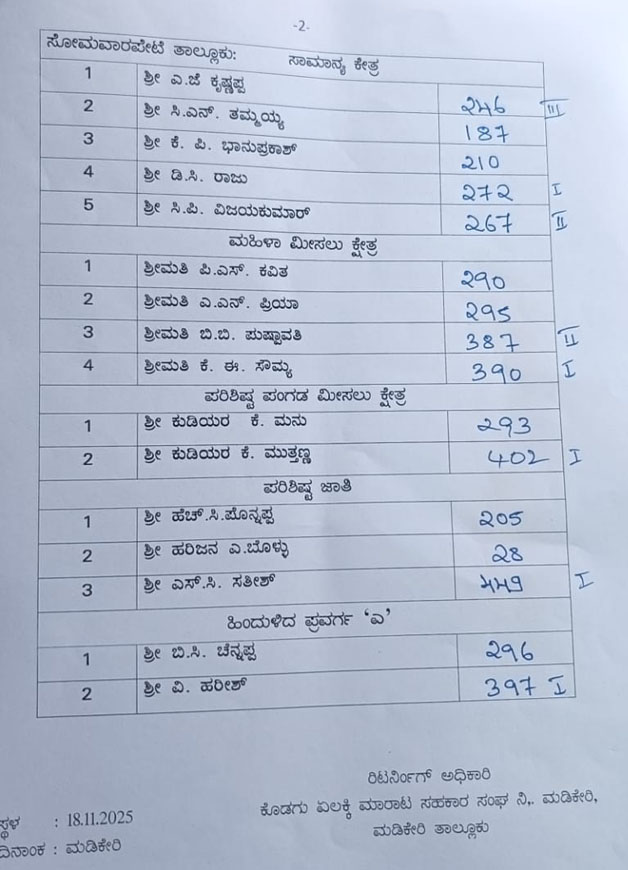 -2-
ಸೋಮವಾರಪೇಟೆ ತಾಲ್ಲೂಕು: ಸಾಮಾನ್ಯ ಕೇತ್ರ
1 ಶ್ರೀ ಎ.ಜೆ ಕೃಷ್ಣಪ್ಪ 246 III
2 ಶ್ರೀ ಸಿ.ಎನ್. ತಮ್ಮಯ್ಯ 187
3 ಶ್ರೀ ಕೆ. ಪಿ. ಭಾನುಪ್ರಕಾಶ್ 210
4 ಶ್ರೀ ಡಿ.ಸಿ. ರಾಜು 272 I
5 ಶ್ರೀ ಸಿ.ಪಿ. ವಿಜಯಕುಮಾರ್ 267 II
ಮಹಿಳಾ ಮೀಸಲು ಕ್ಷೇತ್ರ
1 ಶ್ರೀಮತಿ ಪಿ.ಎಸ್. ಕವಿತ 290
2 ಶ್ರೀಮತಿ ಎ.ಎನ್. ಪ್ರಿಯಾ 295
3 ಶ್ರೀಮತಿ ಬಿ.ಬಿ. ಪುಷ್ಪಾವತಿ 387 II
4 ಶ್ರೀಮತಿ ಕೆ. ಈ. ಸೌಮ್ಯ 390 I
ಪರಿಶಿಷ್ಟ ಪಂಗಡ ಮೀಸಲು ಕ್ಷೇತ್ರ
1 ಶ್ರೀ ಕುಡಿಯರ ಕೆ. ಮನು 293
2 ಶ್ರೀ ಕುಡಿಯರ ಕೆ. ಮುತ್ತಣ್ಣ 402 I
ಪರಿಶಿಷ್ಟ ಜಾತಿ
1 ಶ್ರೀ ಹೆಚ್.ಸಿ.ಪೊನ್ನಪ್ಪ 205
2 ಶ್ರೀ ಹರಿಜನ ಎ.ಬೊಳ್ಳು 28
3 ಶ್ರೀ ಎಸ್.ಸಿ. ಸತೀಶ್ 449 I
ಹಿಂದುಳಿದ ಪ್ರವರ್ಗ ‘ಎ’
1 ಶ್ರೀ ಬಿ.ಸಿ. ಚೆನ್ನಪ್ಪ 296
2 ಶ್ರೀ ವಿ. ಹರೀಶ್ 397 I
ರಿಟರ್ನಿಂಗ್ ಅಧಿಕಾರಿ
ಕೊಡಗು ಏಲಕ್ಕಿ ಮಾರಾಟ ಸಹಕಾರ ಸಂಘ ನಿ,. ಮಡಿಕೇರಿ,
ಮಡಿಕೇರಿ ತಾಲ್ಲೂಕು
ಸ್ಥಳ : 18.11.2025
ದಿನಾಂಕ : ಮಡಿಕೇರಿ